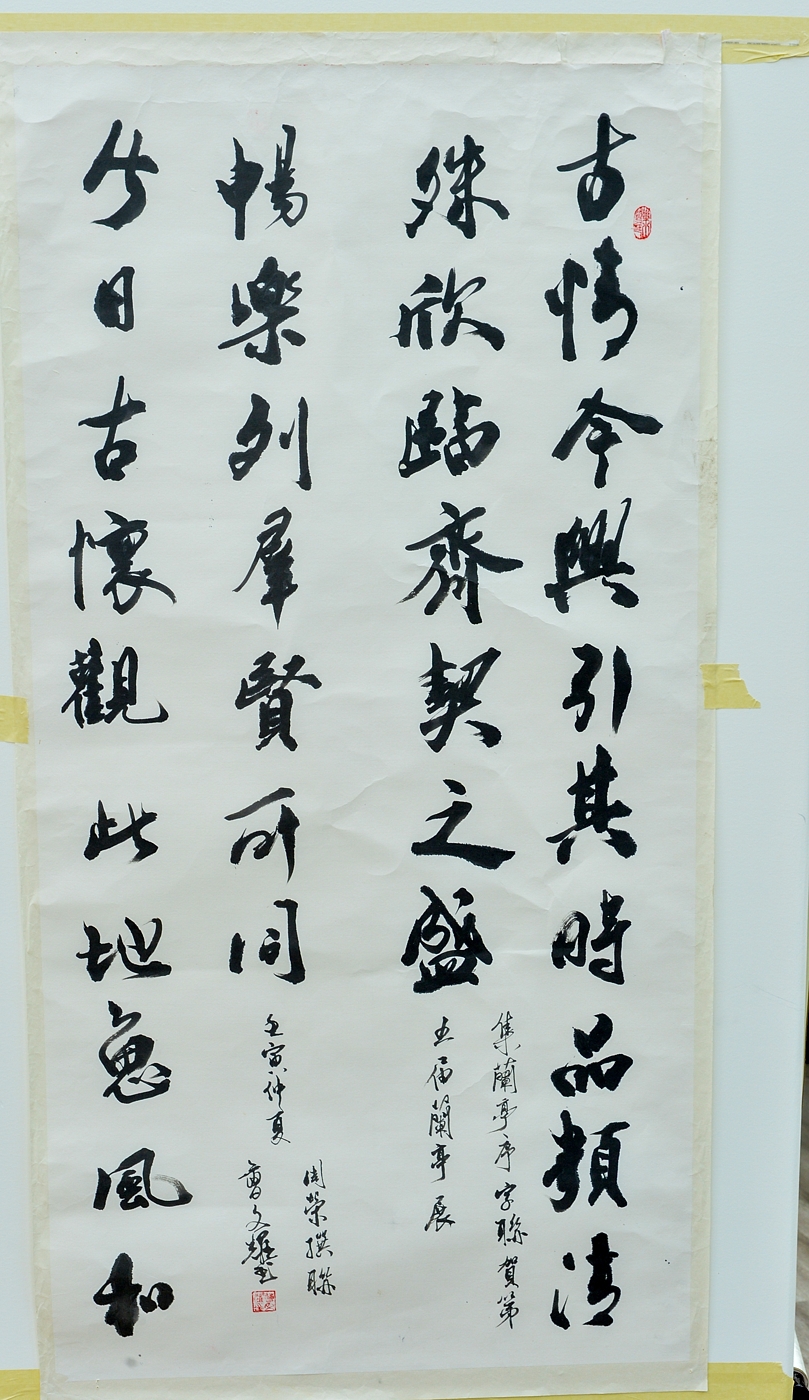 古情今興引其時品類清
殊欣臨齊契之盛
集蘭亭序字聯賀第
五屆蘭亭展
今日古懷觀此地惠風和
暢樂列羣賢所同
周榮撰聯
壬寅仲夏
曹文耀書